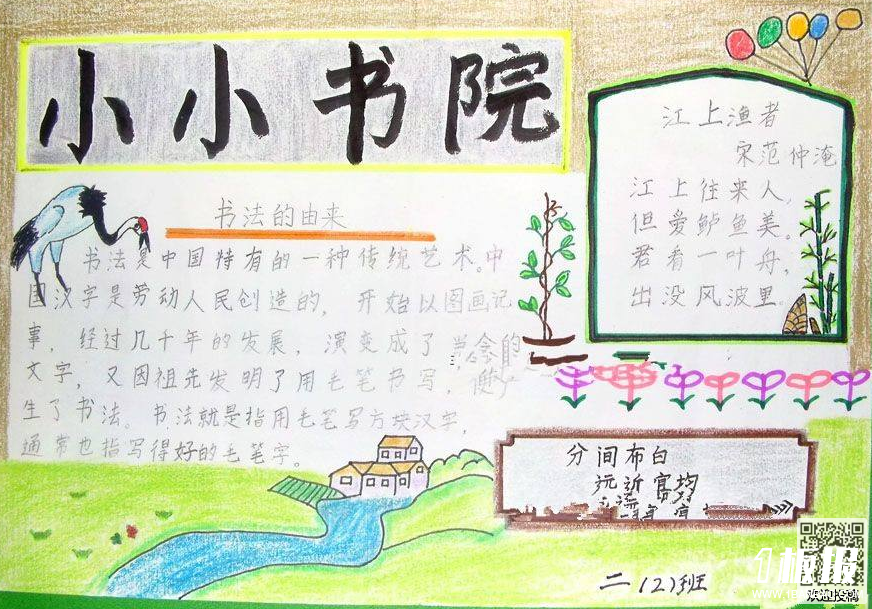 小小书院
书法的由来
书法是中国特有的一种传统艺术。中
国汉字是劳动人民创造的，开始以图画记
事，经过几千年的发展，演变成了当今的
文字，又因祖先发明了用毛笔书写，便产
生了书法。书法就是指用毛笔写方块汉字，
通常也指写得好的毛笔字。
江上渔者
宋范仲淹
江上往来人，
但爱鲈鱼美。
君看一叶舟，
出没风波里。
分间布白
远近宜均
二（2）班
欢迎投稿